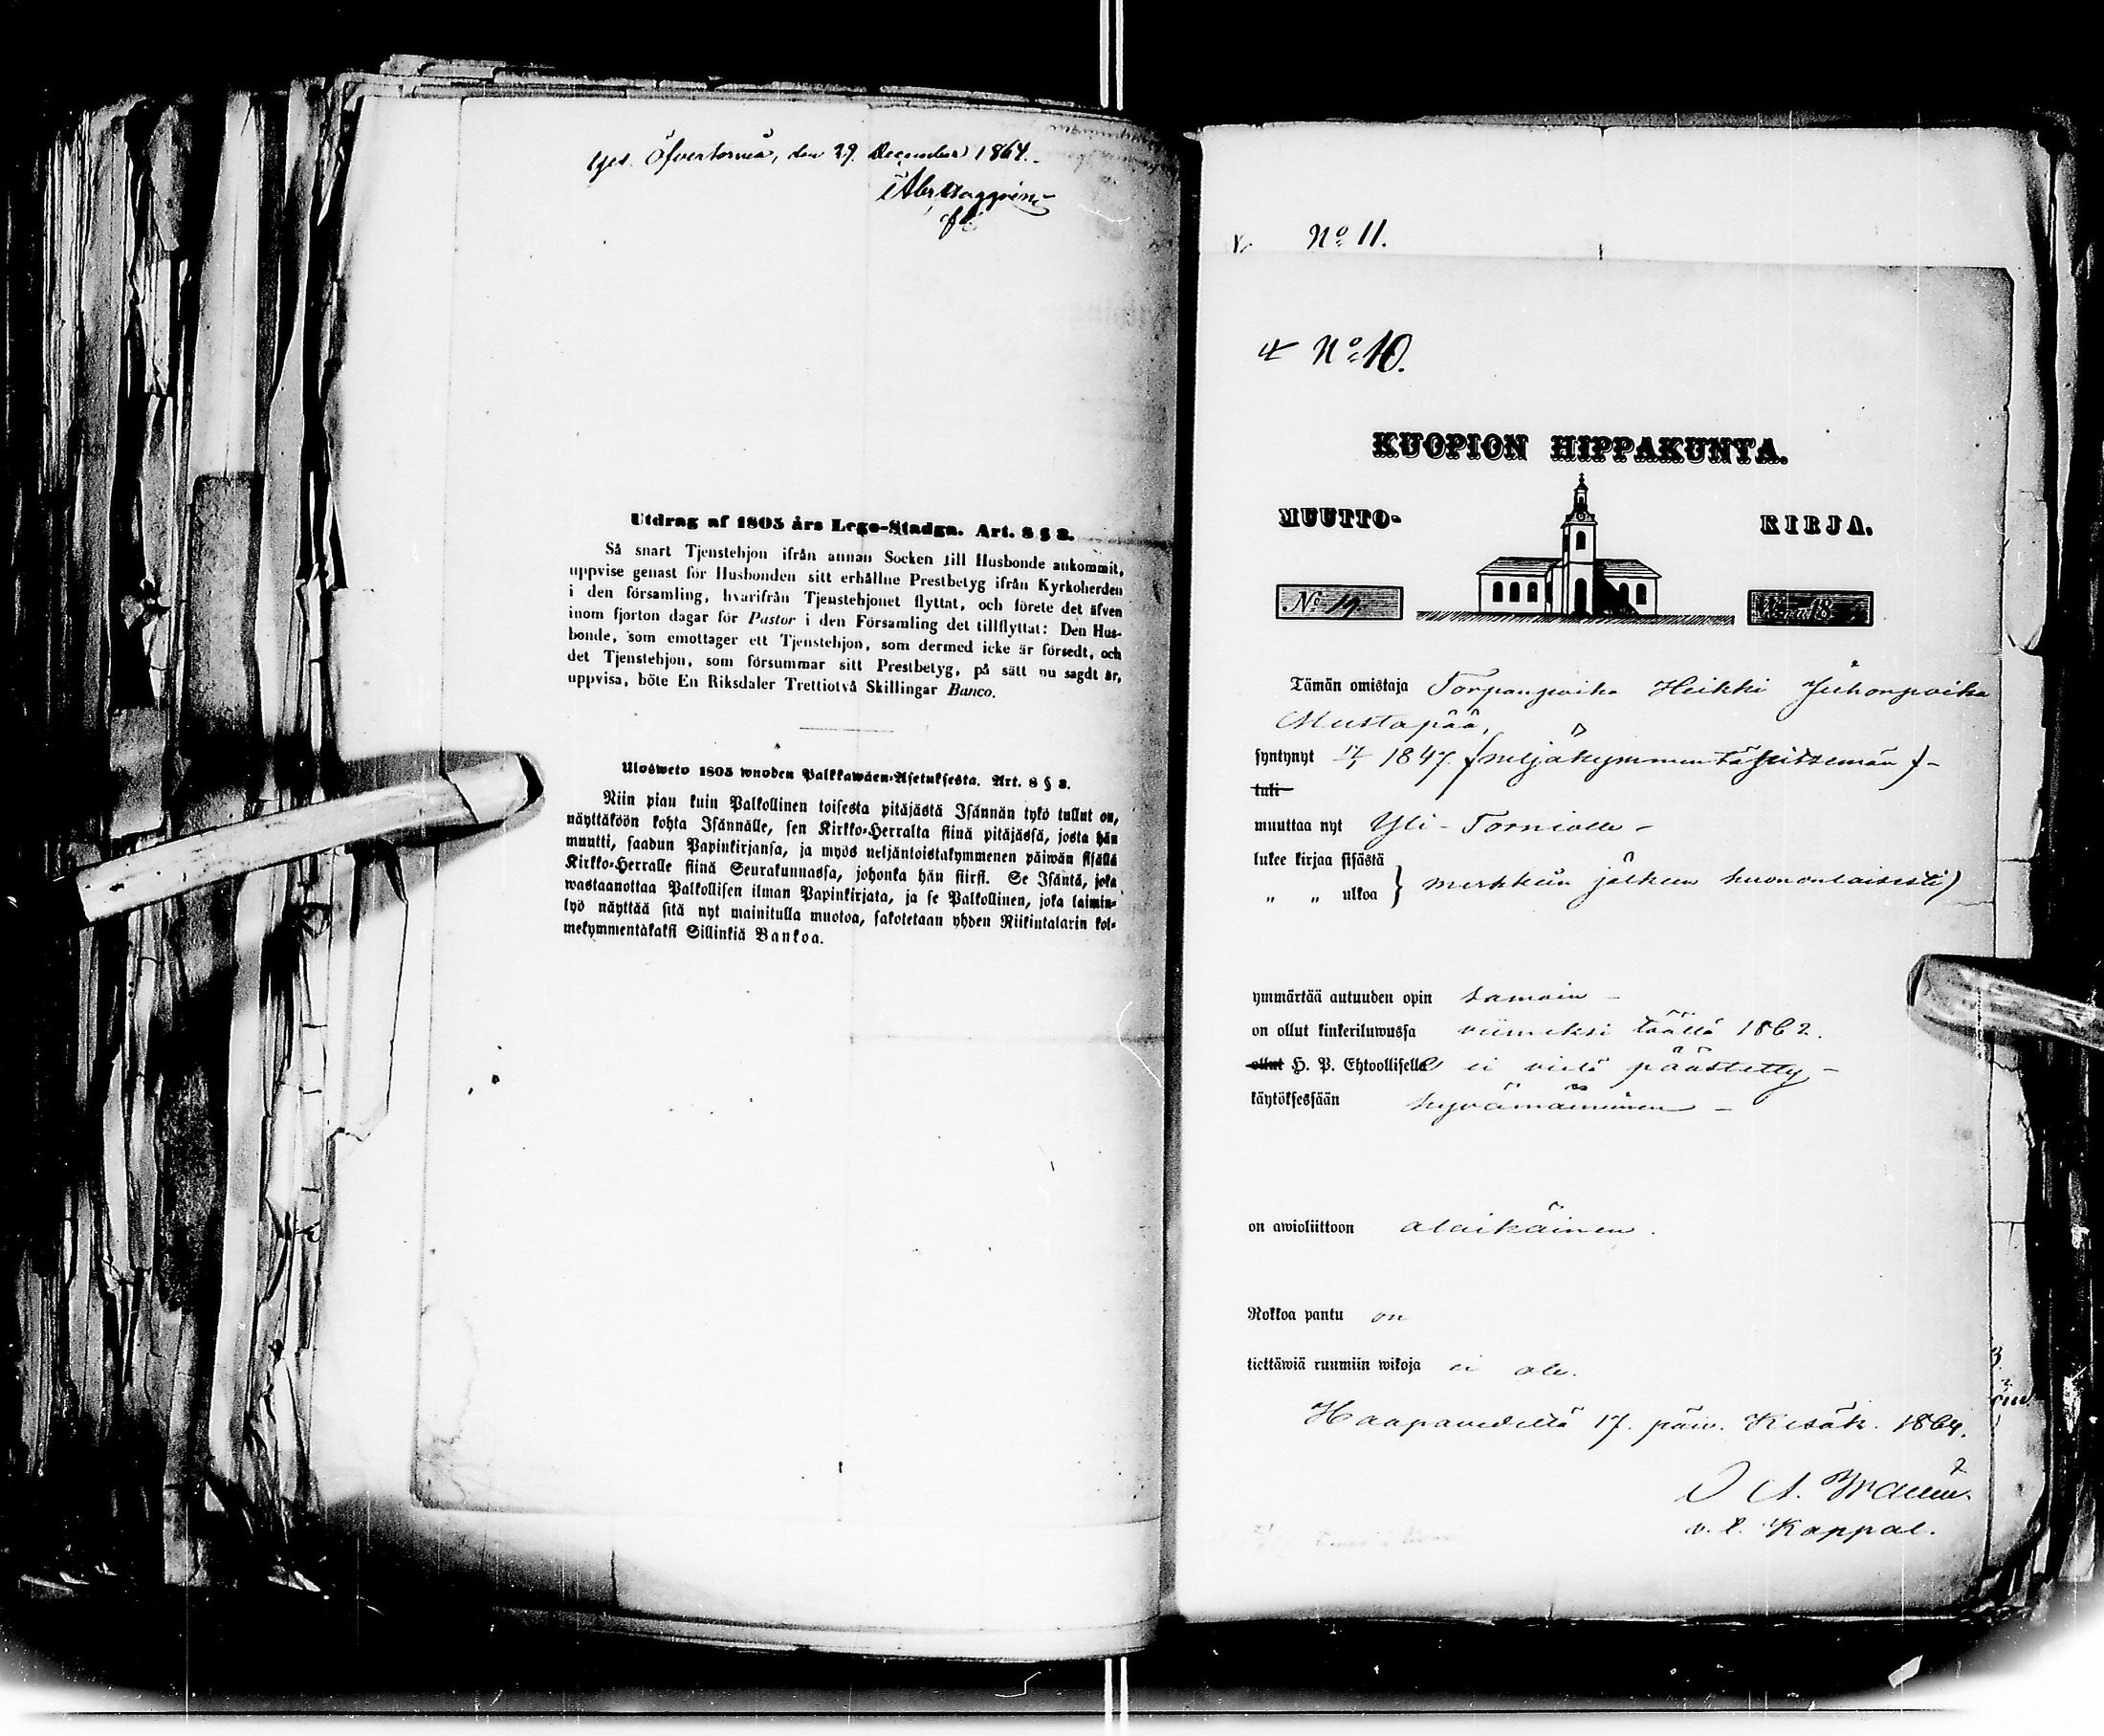 Öfvertorneå, den 29. December 1864.
Utdrag af 1805 års Lego-Stadga. Art. 8 § 3.
Så snart Tjenstehjon ifrån annan Socken till Husbonde ankommit,
uppvise genast för Husbonden sitt erhållne Prestbetyg ifrån Kyrkoherden
i den församling, hvarifrån Tjenstehjonet flyttat, och förete det äfven
inom fjorton dagar för Pastor i den Församling det tillflyttat: Den Hus-
bonde, som emottager ett Tjenstehjon, som dermed icke är försedt, och
det Tjenstehjon, som försummar sitt Prestbetyg, på sätt nu sagdt är,
uppvisa, böte En Riksdaler Trettiotvå Skillingar Banco.
Ulosweto 1805 wuoden Palkkawäen-Asetuksesta. Art. 8 § 3.
Niin pian kuin Palkollinen toisesta pitäjästä Isännän tykö tullut on,
näyttäköön kohta Isännälle, sen Kirkko-Herralta siinä pitäjässä, josta hän
muutti, saadun Papinkirjansa, ja myös neljäntoistakymmenen päiwän sisällä
Kirkko-Herralle siinä Seurakunnassa, johonka hän siirsi. Se Isäntä, joka
wastaanottaa Palkollisen ilman Papinkirjata, ja se Palkollinen, joka laimin-
lyö näyttää sitä nyt mainitulla muotoa, sakotetaan yhden Riikintalarin kol-
mekymmentäkaksi Sillinkiä Bankoa.
No 11.
No 10.
KUOPION HIPPAKUNTA.
MUUTTO- KIRJA.
No 19.
Tämän omistaja Torpanpoika Heikki Juhonpoika
Mustapää,
syntynyt 17/1 1847 (neljäkymmentäseitsemän) -
tuli
muuttaa nyt Yli-Torniolle -
lukee kirjaa sisästä
" " ulkoa } merkkein jälkeen huononlaisesti)
ymmärtää autuuden opin samoin -
on ollut kinkeriluwussa viimeksi täällä 1862.
ollut H. P. Ehtoollisella ei vielä päästetty -
käytöksessään hyvämaineinen -
on awioliittoon alaikäinen.
Rokkoa pantu on
tiettäwiä ruumiin wikoja ei ole.
Haapavedeltä 17. päiv. Kesäk. 1864.
v. t. Kappal.